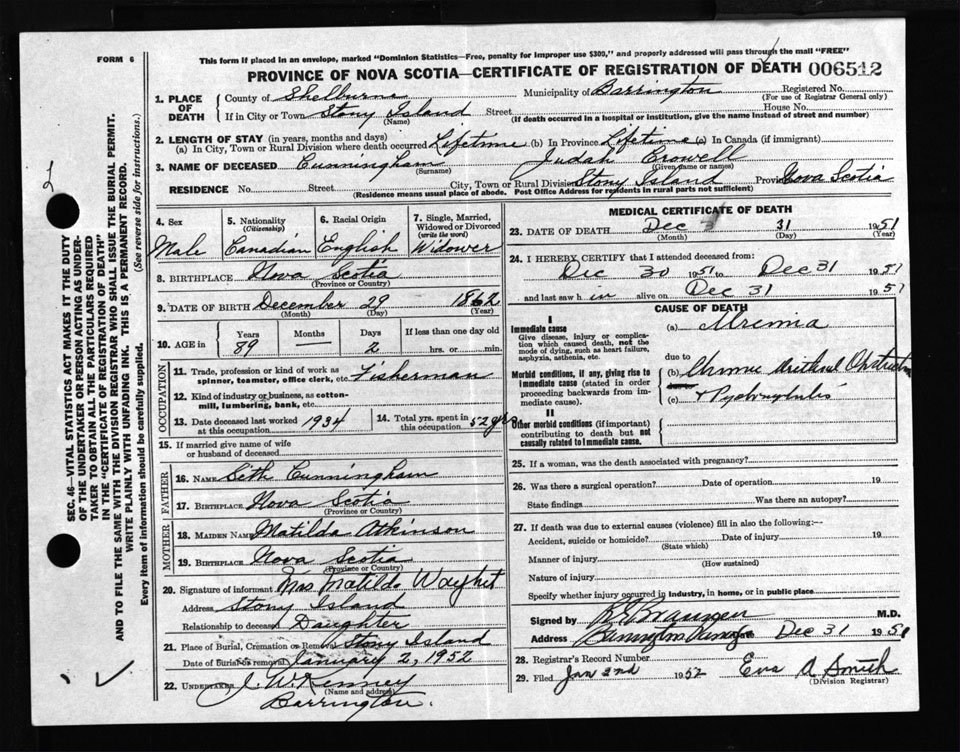 FORM 6
This form if placed in an envelope, marked "Dominion Statistics—Free, penalty for improper use $300," and properly addressed will pass through the mail "FREE"
PROVINCE OF NOVA SCOTIA—CERTIFICATE OF REGISTRATION OF DEATH 006512
1. PLACE OF DEATH
County of Shelburne Municipality of Barrington Registered No.
(For use of Registrar General only)
If in City or Town Stony Island Street House No.
(Name) (If death occurred in a hospital or institution, give the name instead of street and number)
2. LENGTH OF STAY (in years, months and days)
(a) In City, Town or Rural Division where death occurred Lifetime (b) In Province Lifetime (c) In Canada (if immigrant)
3. NAME OF DECEASED Cunningham Judah Crowell
(Surname) (Given name or names)
RESIDENCE No. Street City, Town or Rural Division Stony Island Province Nova Scotia
(Residence means usual place of abode. Post Office Address for residents in rural parts not sufficient)
4. Sex Male
5. Nationality (Citizenship) Canadian
6. Racial Origin English
7. Single, Married, Widowed or Divorced (write the word) Widower
8. BIRTHPLACE Nova Scotia
(Province or Country)
9. DATE OF BIRTH December 29 1862
(Month) (Day) (Year)
10. AGE in Years Months Days If less than one day old
89 — 2 hrs. or min.
OCCUPATION
11. Trade, profession or kind of work as spinner, teamster, office clerk, etc. Fisherman
12. Kind of industry or business, as cotton-mill, lumbering, bank, etc.
13. Date deceased last worked at this occupation 1934
14. Total yrs. spent in this occupation 52 yrs
15. If married give name of wife or husband of deceased
FATHER
16. NAME Seth Cunningham
17. BIRTHPLACE Nova Scotia
(Province or Country)
MOTHER
18. MAIDEN NAME Matilda Atkinson
19. BIRTHPLACE Nova Scotia
(Province or Country)
20. Signature of informant Mrs Matilda
Address Stony Island
Relationship to deceased Daughter
21. Place of Burial, Cremation or Removal Stony Island
Date of burial or removal January 2, 1952
22. UNDERTAKER J. W. Kenney
(Name and address)
Barrington.
MEDICAL CERTIFICATE OF DEATH
23. DATE OF DEATH Dec 31 1951
(Month) (Day) (Year)
24. I HEREBY CERTIFY that I attended deceased from:
Dec 30 1951 to Dec 31 1951
and last saw h im alive on Dec 31 1951
CAUSE OF DEATH
I
Immediate cause
Give disease, injury or complication which caused death, not the mode of dying, such as heart failure, asphyxia, asthenia, etc.
(a) Uremia
due to
Morbid conditions, if any, giving rise to immediate cause (stated in order proceeding backwards from immediate cause).
(b) Chronic urethral Obstruction
(c)
II
Other morbid conditions (if important) contributing to death but not causally related to immediate cause.
25. If a woman, was the death associated with pregnancy?
26. Was there a surgical operation? Date of operation 19
State findings Was there an autopsy?
27. If death was due to external causes (violence) fill in also the following:—
Accident, suicide or homicide? Date of injury 19
(State which)
Manner of injury
(How sustained)
Nature of injury
Specify whether injury occurred in industry, in home, or in public place
Signed by M.D.
Address Dec 31 1951
28. Registrar's Record Number
29. Filed Jan 2nd 1952 Eva A Smith
(Division Registrar)
SEC. 46—VITAL STATISTICS ACT MAKES IT THE DUTY
OF THE UNDERTAKER OR PERSON ACTING AS UNDER-
TAKER TO OBTAIN ALL THE PARTICULARS REQUIRED
IN THE "CERTIFICATE OF REGISTRATION OF DEATH"
AND TO FILE THE SAME WITH THE DIVISION REGISTRAR WHO SHALL ISSUE THE BURIAL PERMIT.
WRITE PLAINLY WITH UNFADING INK. THIS IS A PERMANENT RECORD.
Every item of information should be carefully supplied. (See reverse side for instructions.)